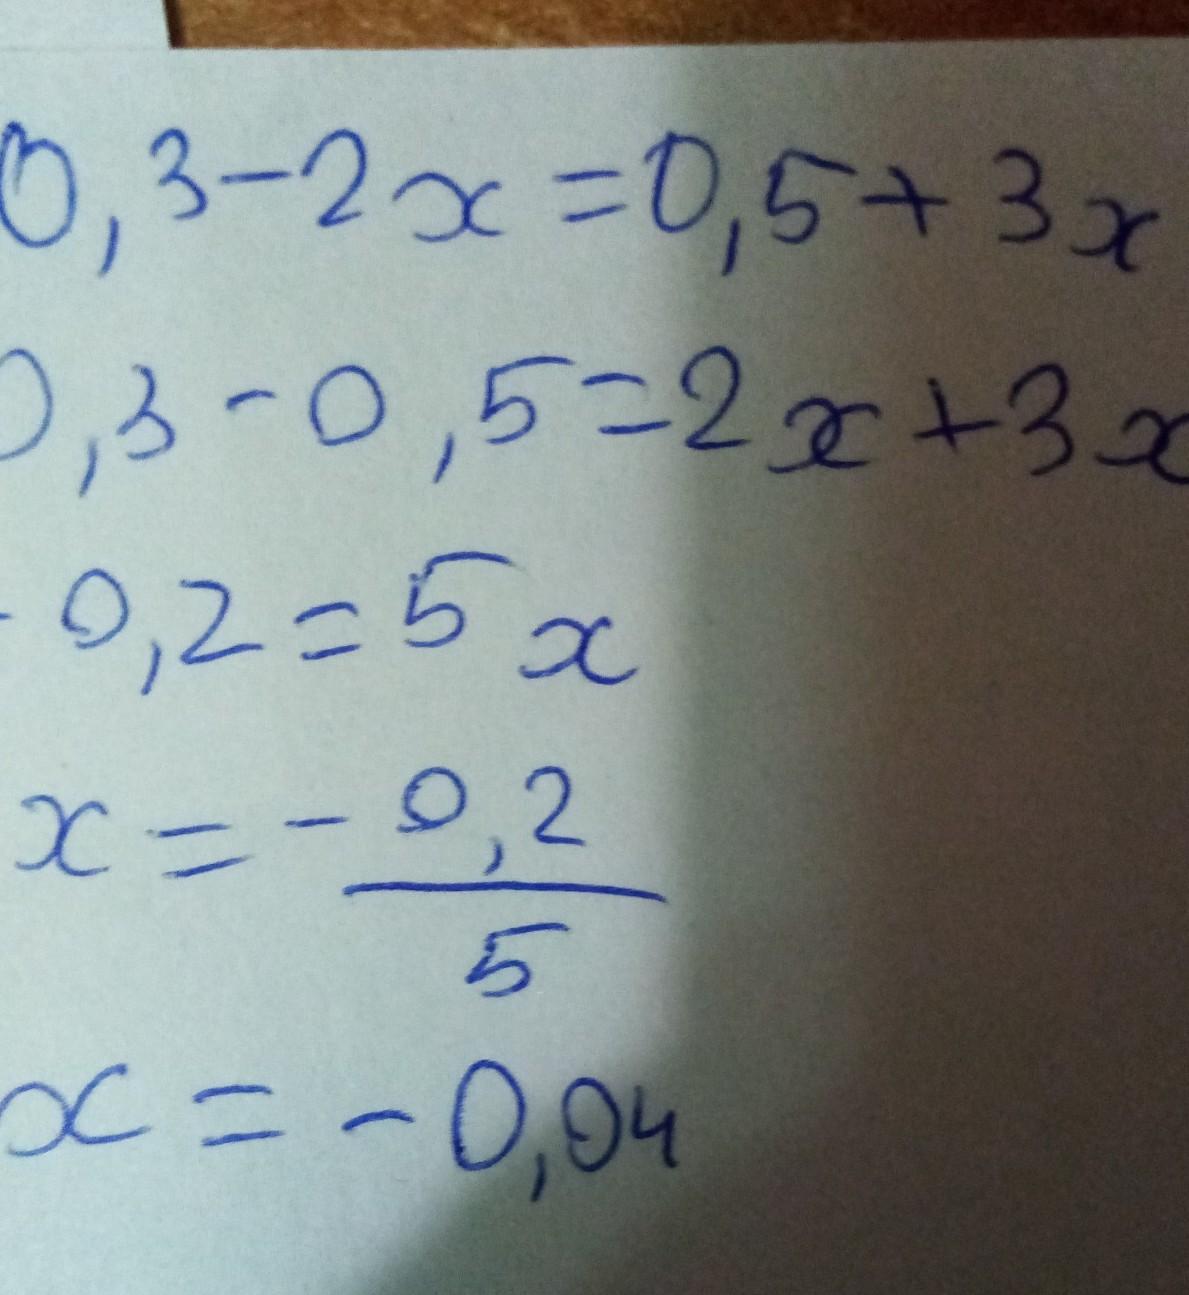 0,3-2x=0,5+3x
0,3-0,5=2x+3x
-0,2=5x
x=-0,2/5
x=-0,04